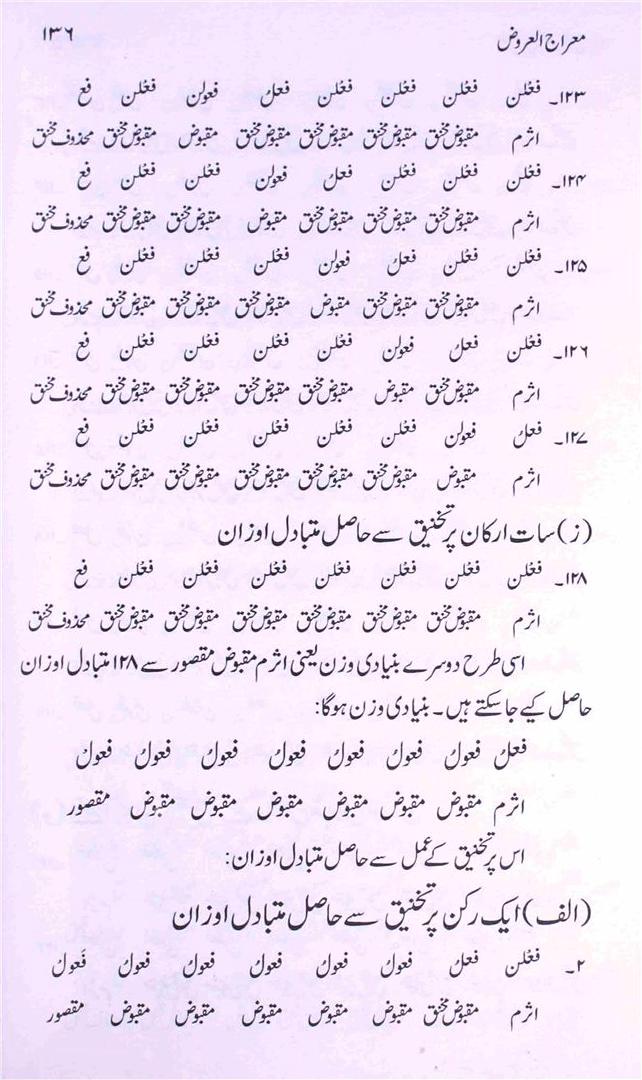 معراج العروض ۱۳۶
۱۲۳۔ فعْلن فعْلن فعْلن فعْلن فعلُ فعولن فعْلن فع
اثرم مقبوض مخنق مقبوض مخنق مقبوض مخنق مقبوض مخنق مقبوض مقبوض مخنق محذوف مخنق
۱۲۴۔ فعْلن فعْلن فعْلن فعلُ فعولن فعْلن فعْلن فع
اثرم مقبوض مخنق مقبوض مخنق مقبوض مخنق مقبوض مقبوض مخنق مقبوض مخنق محذوف مخنق
۱۲۵۔ فعْلن فعْلن فعلُ فعولن فعْلن فعْلن فعْلن فع
اثرم مقبوض مخنق مقبوض مخنق مقبوض مقبوض مخنق مقبوض مخنق مقبوض مخنق محذوف مخنق
۱۲۶۔ فعْلن فعلُ فعولن فعْلن فعْلن فعْلن فعْلن فع
اثرم مقبوض مخنق مقبوض مقبوض مخنق مقبوض مخنق مقبوض مخنق مقبوض مخنق محذوف مخنق
۱۲۷۔ فعلُ فعولن فعْلن فعْلن فعْلن فعْلن فعْلن فع
اثرم مقبوض مقبوض مخنق مقبوض مخنق مقبوض مخنق مقبوض مخنق مقبوض مخنق محذوف مخنق
(ز) سات ارکان پر تخنیق سے حاصل متبادل اوزان
۱۲۸۔ فعْلن فعْلن فعْلن فعْلن فعْلن فعْلن فعْلن فع
اثرم مقبوض مخنق مقبوض مخنق مقبوض مخنق مقبوض مخنق مقبوض مخنق مقبوض مخنق محذوف مخنق
اسی طرح دوسرے بنیادی وزن یعنی اثرم مقبوض مقصور سے ۱۲۸ متبادل اوزان
حاصل کیے جاسکتے ہیں۔ بنیادی وزن ہوگا:
فعلُ فعولُ فعولُ فعولُ فعولُ فعولُ فعولُ فعولْ
اثرم مقبوض مقبوض مقبوض مقبوض مقبوض مقبوض مقصور
اس پر تخنیق کے عمل سے حاصل متبادل اوزان:
(الف) ایک رکن پر تخنیق سے حاصل متبادل اوزان
۲۔ فعْلن فعلُ فعولُ فعولُ فعولُ فعولُ فعولُ فعولْ
اثرم مقبوض مخنق مقبوض مقبوض مقبوض مقبوض مقبوض مقصور